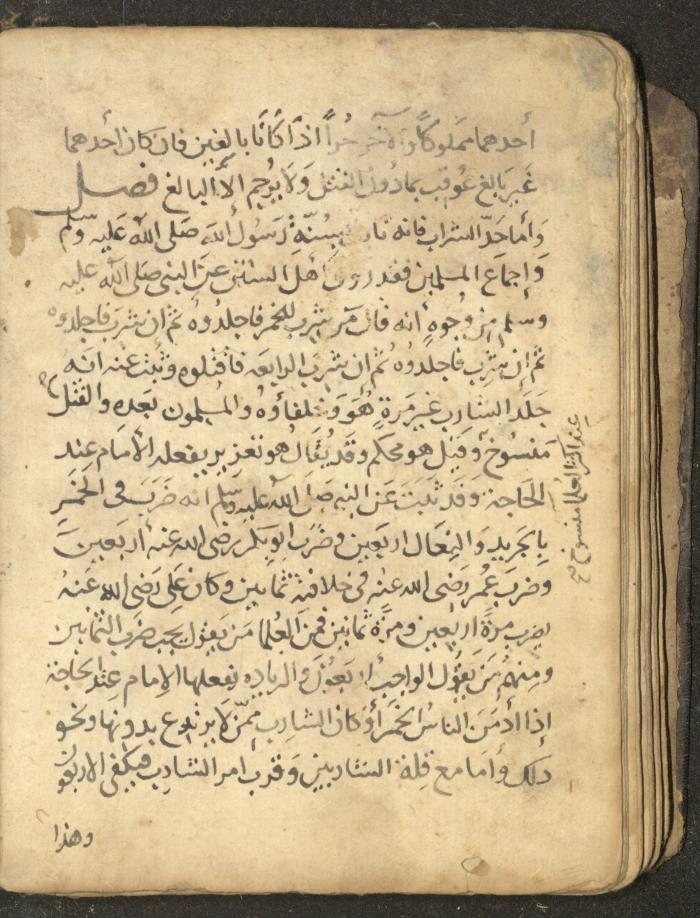 أحدهما مملوكا والآخر حرا اذا كانا بالغين فان كان أحدهما
غير بالغ عوقب بما دون القتل ولا يرجم الا البالغ فصل
وأما حد الشراب فانه ثابت بسنة رسول الله صلى الله عليه وسلم
وإجماع المسلمين فقد روى أهل السنن عن النبي صلى الله عليه
وسلم من وجوه أنه قال من شرب الخمر فاجلدوه ثم ان شرب فاجلدوه
ثم ان شرب فاجلدوه ثم ان شرب الرابعة فاقتلوه وثبت عنه انه
جلد الشارب غير مرة هو وخلفاؤه والمسلمون بعده والقتل
منسوخ وقيل هو محكم وقد يقال هو تعزير يفعله الامام عند
الحاجة وقد ثبت عن النبي صلى الله عليه وسلم انه ضرب في الخمر
بالجريد والنعال اربعين وضرب ابو بكر رضى الله عنه أربعين
وضرب عمر رضى الله عنه في خلافته ثمانين وكان علي رضى الله عنه
يضرب مرة اربعين ومرة ثمانين فمن العلما من يقول يجب ضرب الثمانين
ومنهم من يقول الواجب اربعون والزياده يفعلها الامام عند الحاجة
إذا أدمن الناس الخمر أو كان الشارب ممن لا يرتدع بدونها ونحو
ذلك وأما مع قلة الشاربين وقرب امر الشارب فيكفي الاربعون
وهذا
عند اكثر العلما منسوخ صح